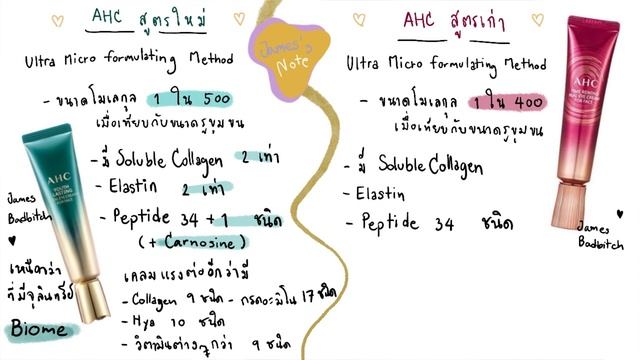 AHC สูตรใหม่
Ultra Micro formulating Method
- ขนาดโมเลกุล 1 ใน 500
เมื่อเทียบกับขนาดรูขุมขน
- มี Soluble Collagen 2 เท่า
- Elastin 2 เท่า
- Peptide 34 + 1 ชนิด
(+ Carnosine)
AHC
YOUTH LASTING
James
Badbitch
เหนือกว่า
ที่มีจุลินทรีย์
Biome
เคลมแรงต่ออีกว่ามี
- Collagen 9 ชนิด - กรดอะมิโน 17 ชนิด
- Hya 10 ชนิด
- วิตามินต่างๆกว่า 9 ชนิด
James's
Note
AHC สูตรเก่า
Ultra Micro formulating Method
- ขนาดโมเลกุล 1 ใน 400
เมื่อเทียบกับขนาดรูขุมขน
- มี Soluble Collagen
- Elastin
- Peptide 34 ชนิด
AHC
James
Badbitch